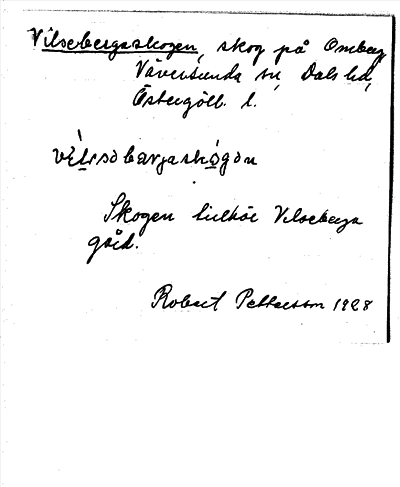 Vilsebergaskogen, skog på Omberg
Väversunda sn, Dals hd,
Östergötl. l.
vìlsobærjaskógon
Skogen tillhör Vilseberga
gård.
Robert Pettersson 1928